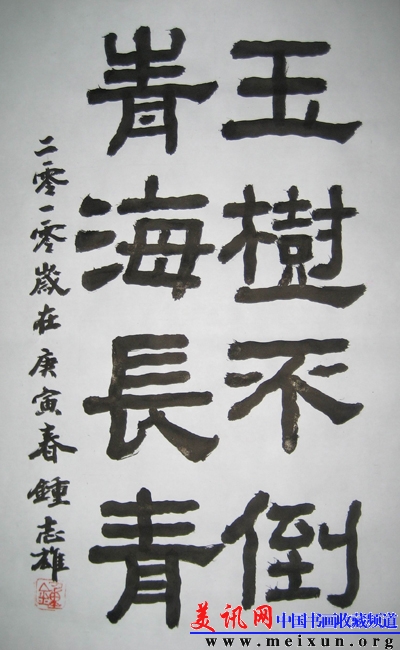 玉樹不倒
青海長青
二零一零歲在庚寅春鍾志雄
鍾
美讯网 中国书画收藏频道
www.meixun.org